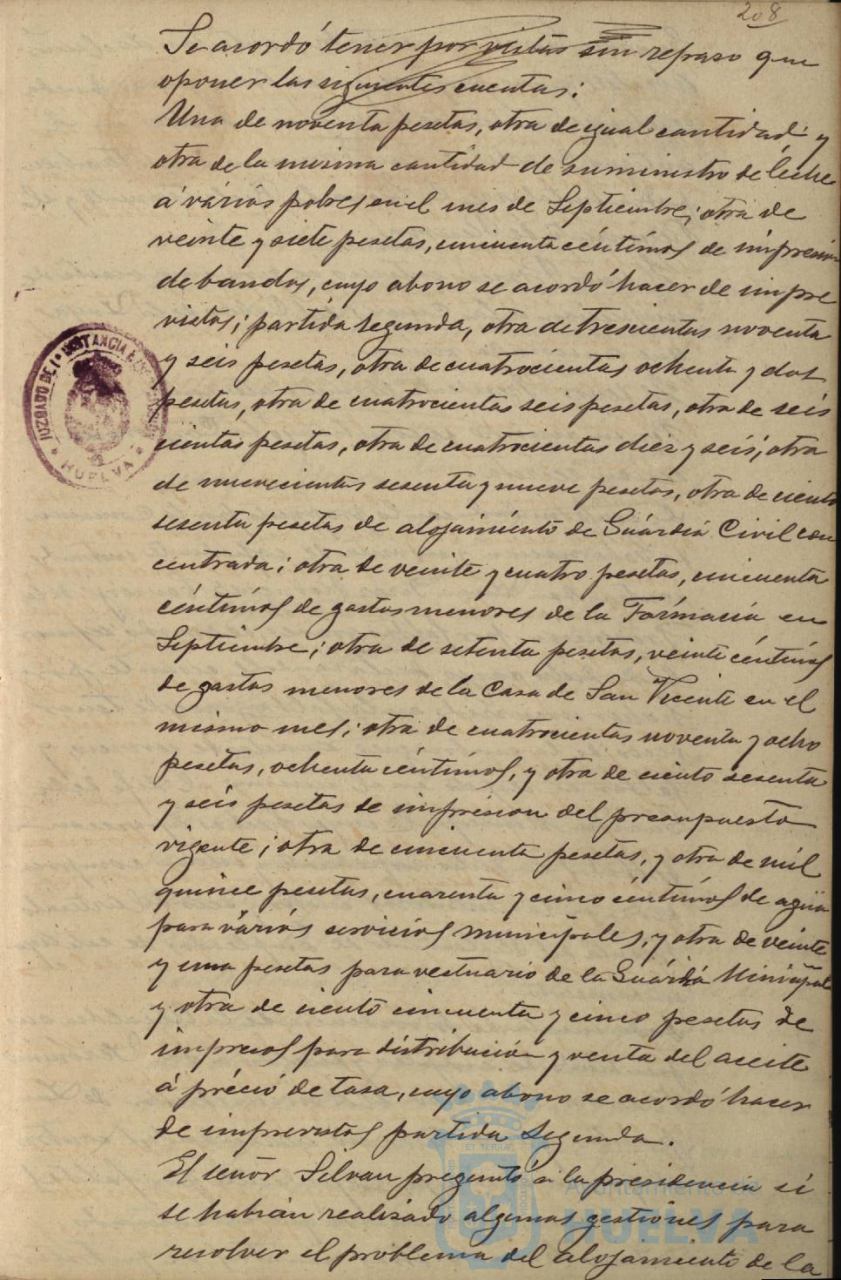 208
Se acordó tener por vistas sin reparo que
oponer las siguientes cuentas:
Una de noventa pesetas, otra de igual cantidad y
otra de la misma cantidad de suministro de leche
á varios pobres en el mes de Septiembre; otra de
veinte y siete pesetas, cincuenta céntimos de impresión
de bandos, cuyo abono se acordó hacer de impre
vistos; partida segunda, otra de trescientas noventa
y seis pesetas, otra de cuatrocientas ochenta y dos
pesetas, otra de cuatrocientas seis pesetas, otra de seis
cientas pesetas, otra de cuatrocientas diez y seis; otra
de nuevecientas sesenta y nueve pesetas, otra de ciento
sesenta pesetas de alojamiento de Guardia Civil con
centrada; otra de veinte y cuatro pesetas, cincuenta
céntimos de gastos menores de la Farmacia en
Septiembre; otra de setenta pesetas, veinte céntimos
de gastos menores de la Casa de San Vicente en el
mismo mes; otra de cuatrocientas noventa y ocho
pesetas, ochenta céntimos, y otra de ciento sesenta
y seis pesetas de impresion del presupuesto
vigente; otra de cincuenta pesetas, y otra de mil
quince pesetas, cuarenta y cinco céntimos de agua
para varios servicios municipales, y otra de veinte
y una pesetas para vestuario de la Guardia Municipal
y otra de ciento cincuenta y cinco pesetas de
impresos para distribución y venta del aceite
á précio de tasa, cuyo abono se acordó hacer
de imprevistos partida segunda.
El señor Silvan preguntó á la presidencia si
se habian realizado algunas gestiones para
resolver el problema del alojamiento de la
JUZGADO DE 1ª INSTANCIA É
HUELVA
Ayuntamiento
HUELVA